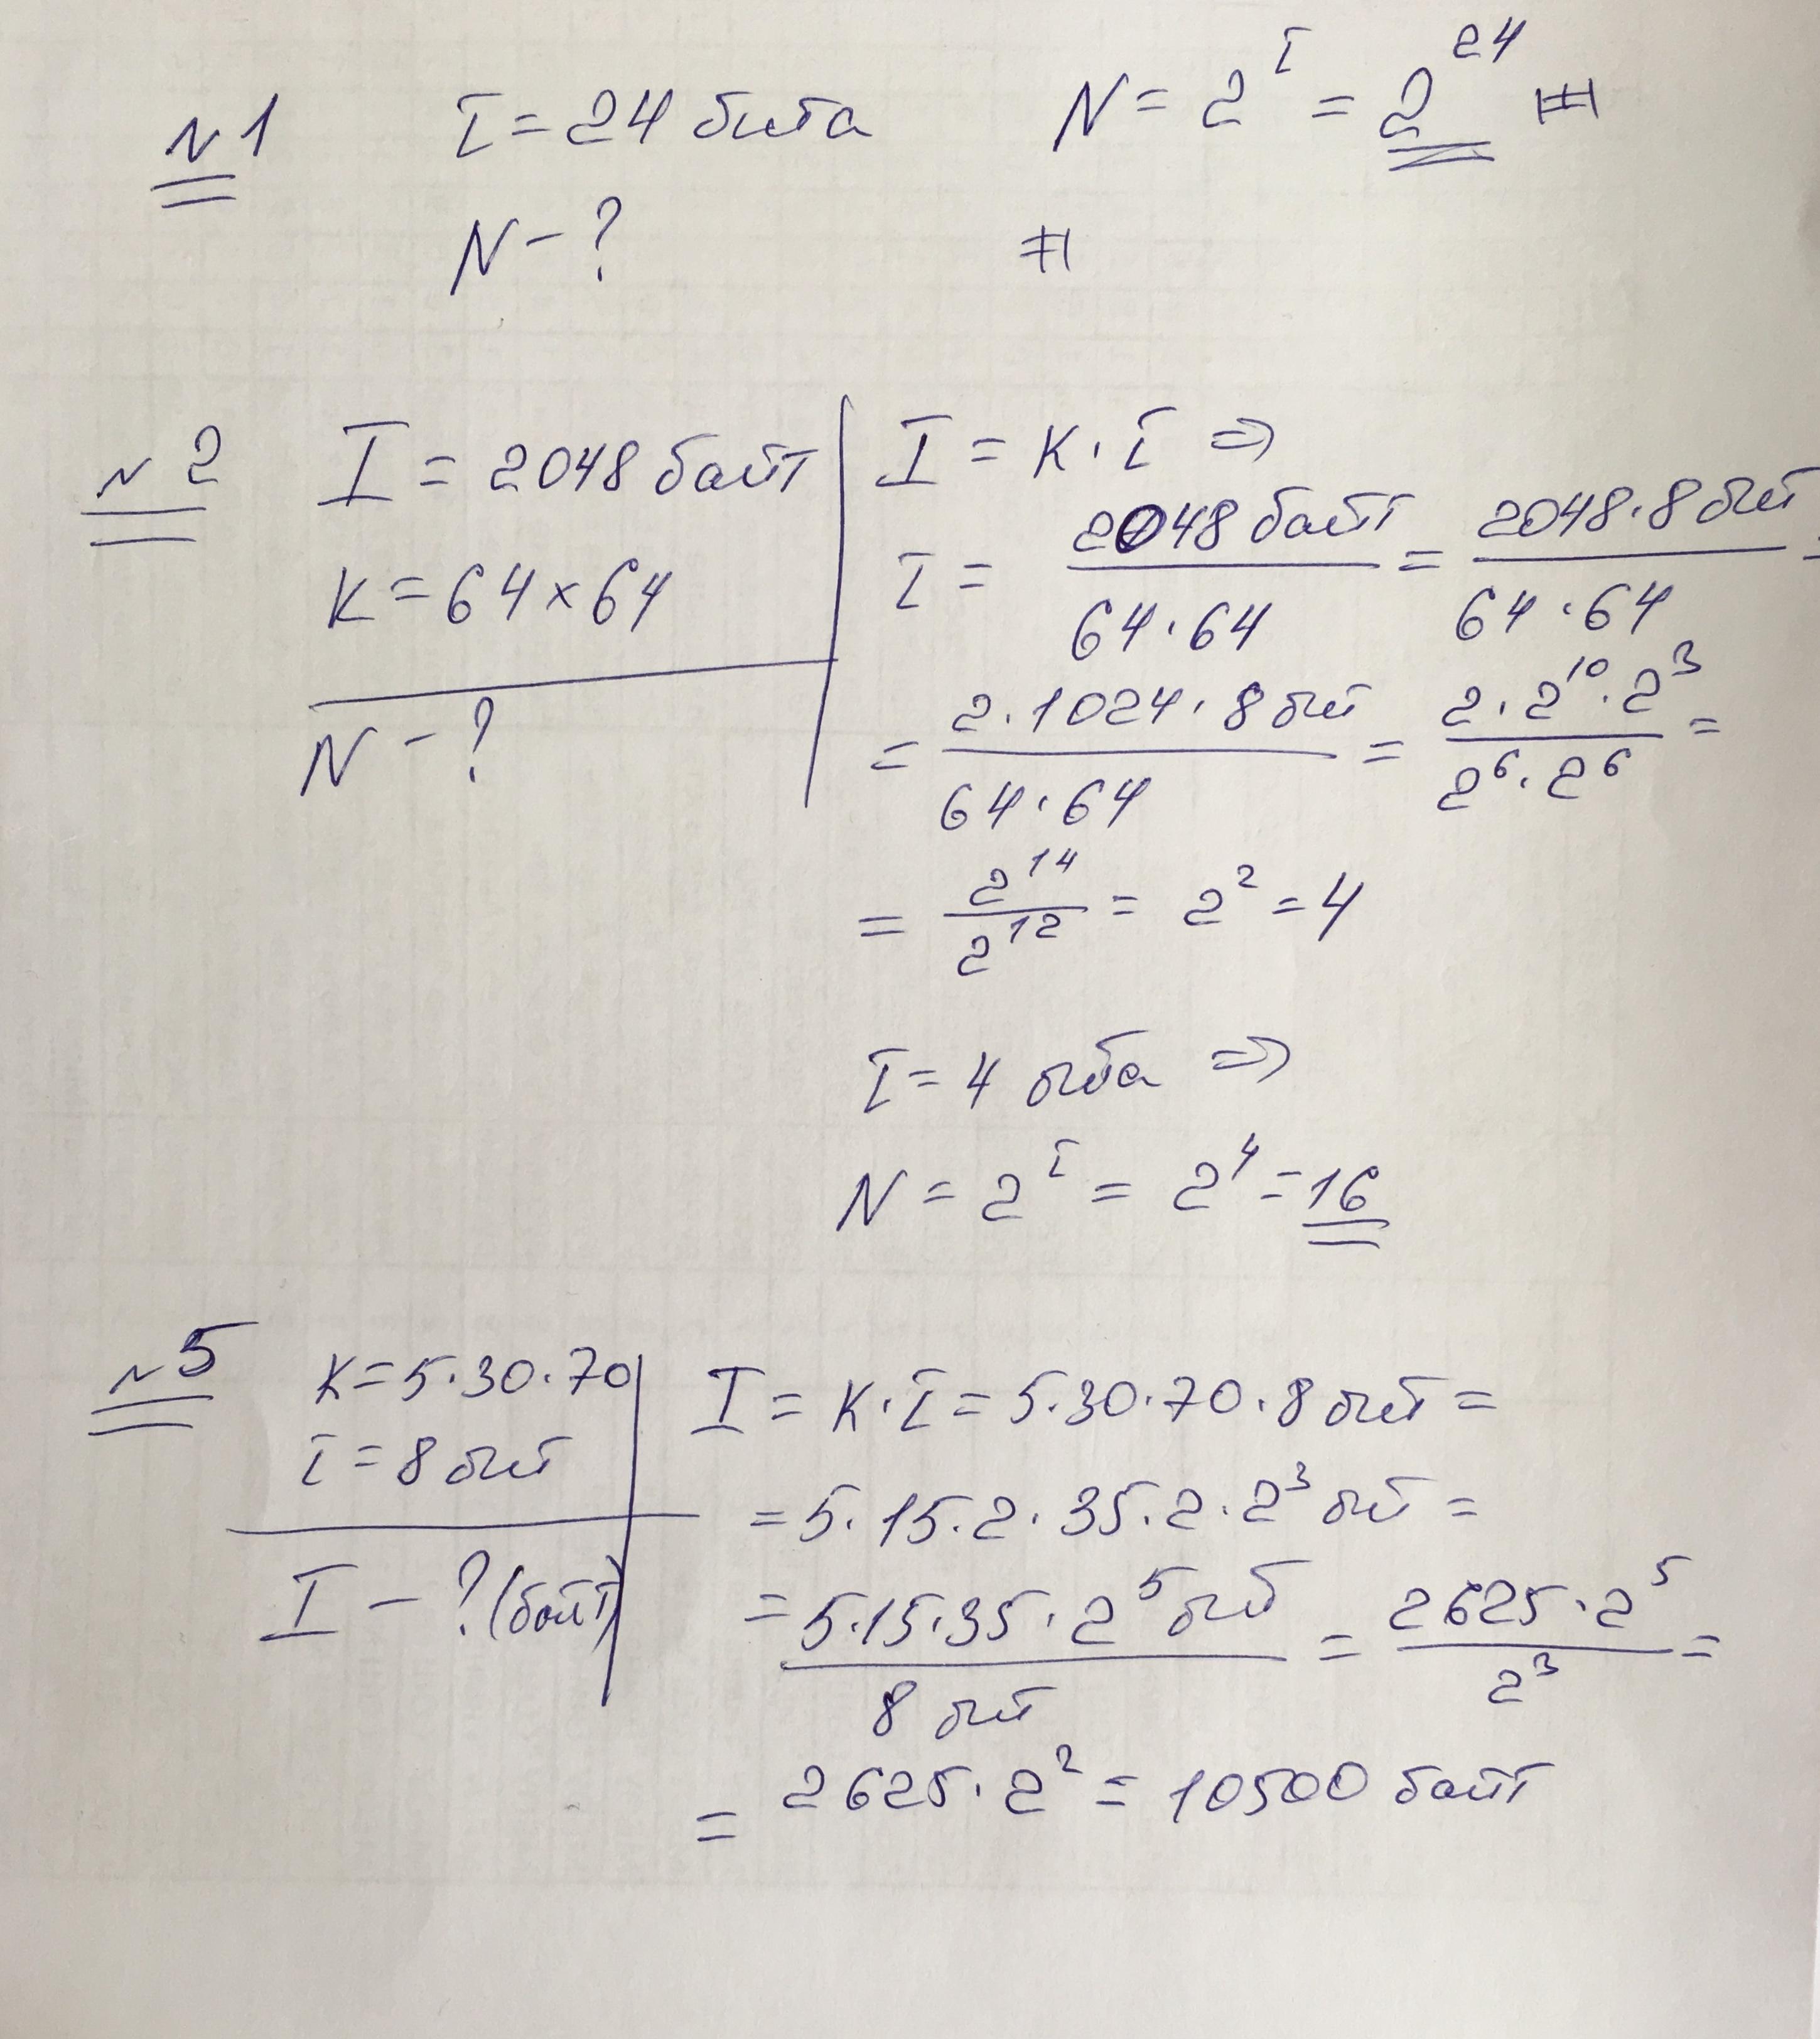 N1 i = 24 бита N = 2^i = 2^24
N - ?
N2 I = 2048 байт
K = 64 × 64
N - ?
I = K · i ⇒
i = 2048 байт / 64 · 64 = 2048 · 8 бит / 64 · 64 =
= 2 · 1024 · 8 бит / 64 · 64 = 2 · 2^10 · 2^3 / 2^6 · 2^6 =
= 2^14 / 2^12 = 2^2 = 4
i = 4 бита ⇒
N = 2^i = 2^4 = 16
N5 K = 5 · 30 · 70
i = 8 бит
I - ? (байт)
I = K · i = 5 · 30 · 70 · 8 бит =
= 5 · 15 · 2 · 35 · 2 · 2^3 бит =
= 5 · 15 · 35 · 2^5 бит / 8 бит = 2625 · 2^5 / 2^3 =
= 2625 · 2^2 = 10500 байт